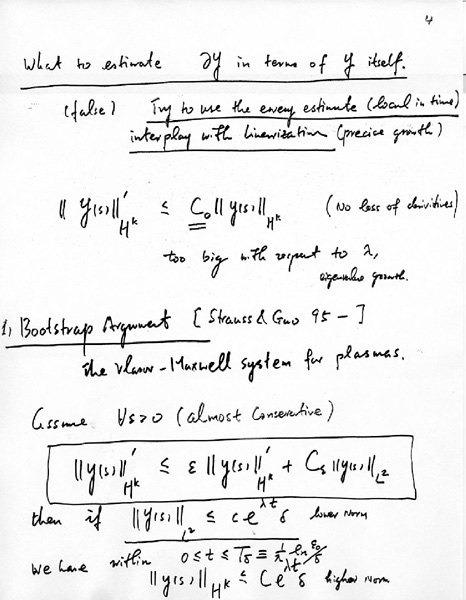 4
What to estimate ∂y in terms of y itself.
(false) Try to use the energy estimate (local in time)
interplay with linearization (precise growth)
‖y(s)‖'_{H^k} ≤ C_0 ‖y(s)‖_{H^k} (No loss of derivitives)
too big with respect to λ,
eigenvalue growth.
1, Bootstrap Argument [Strauss & Guo 95 - ]
The Vlasov-Maxwell system for plasmas.
Assume ∀ε>0 (almost conservative)
‖y(s)‖'_{H^k} ≤ ε ‖y(s)‖'_{H^k} + C_ε ‖y(s)‖_{L^2}
then if ‖y(s)‖_{L^2} ≤ c e^{λt} δ lower norm
We have within 0 ≤ t ≤ T_δ ≡ 1/λ ln ε_0/δ
‖y(s)‖_{H^k} ≤ C e^{λt} δ higher norm